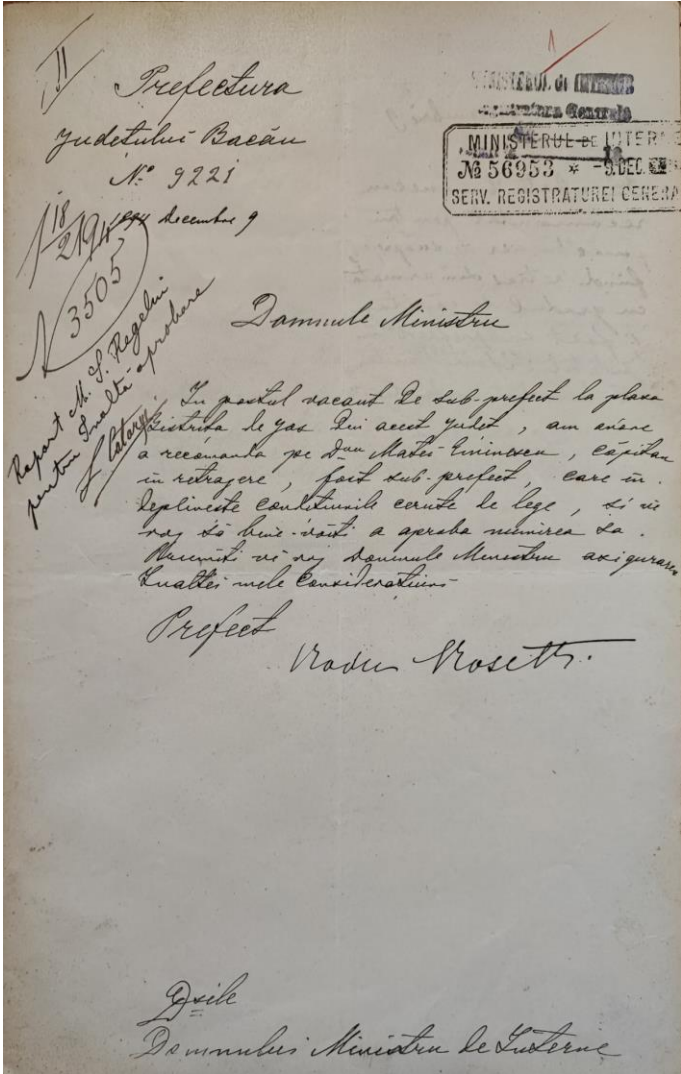 II
1
Prefectura
Judetului Bacău
Nº 9221
1894 Decembre 9
MINISTERUL DE INTERNE
Registratura Generala
MINISTERUL DE INTERNE
№ 56953 * -9.DEC.
SERV. REGISTRATUREI GENERA
18
2194
N 3505
Raport M. S. Regelui
pentru Inalta aprobare
L Catargi
Domnule Ministru
In postul vacant de sub-prefect la plasa
Bistrita de jos din acest judet, am onore
a recomanda pe Dnu Matei Eminescu, căpitan
in retragere, fost sub-prefect, care in
deplineste conditiunile cerute de lege, si ve
rog să bine-voiti a aproba numirea sa.
Primiti vĕ rog Domnule Ministru asigurarea
Inaltei mele consideratiuni
Prefect
Radu Rosetti.
Dsile
Domnului Ministru de Interne